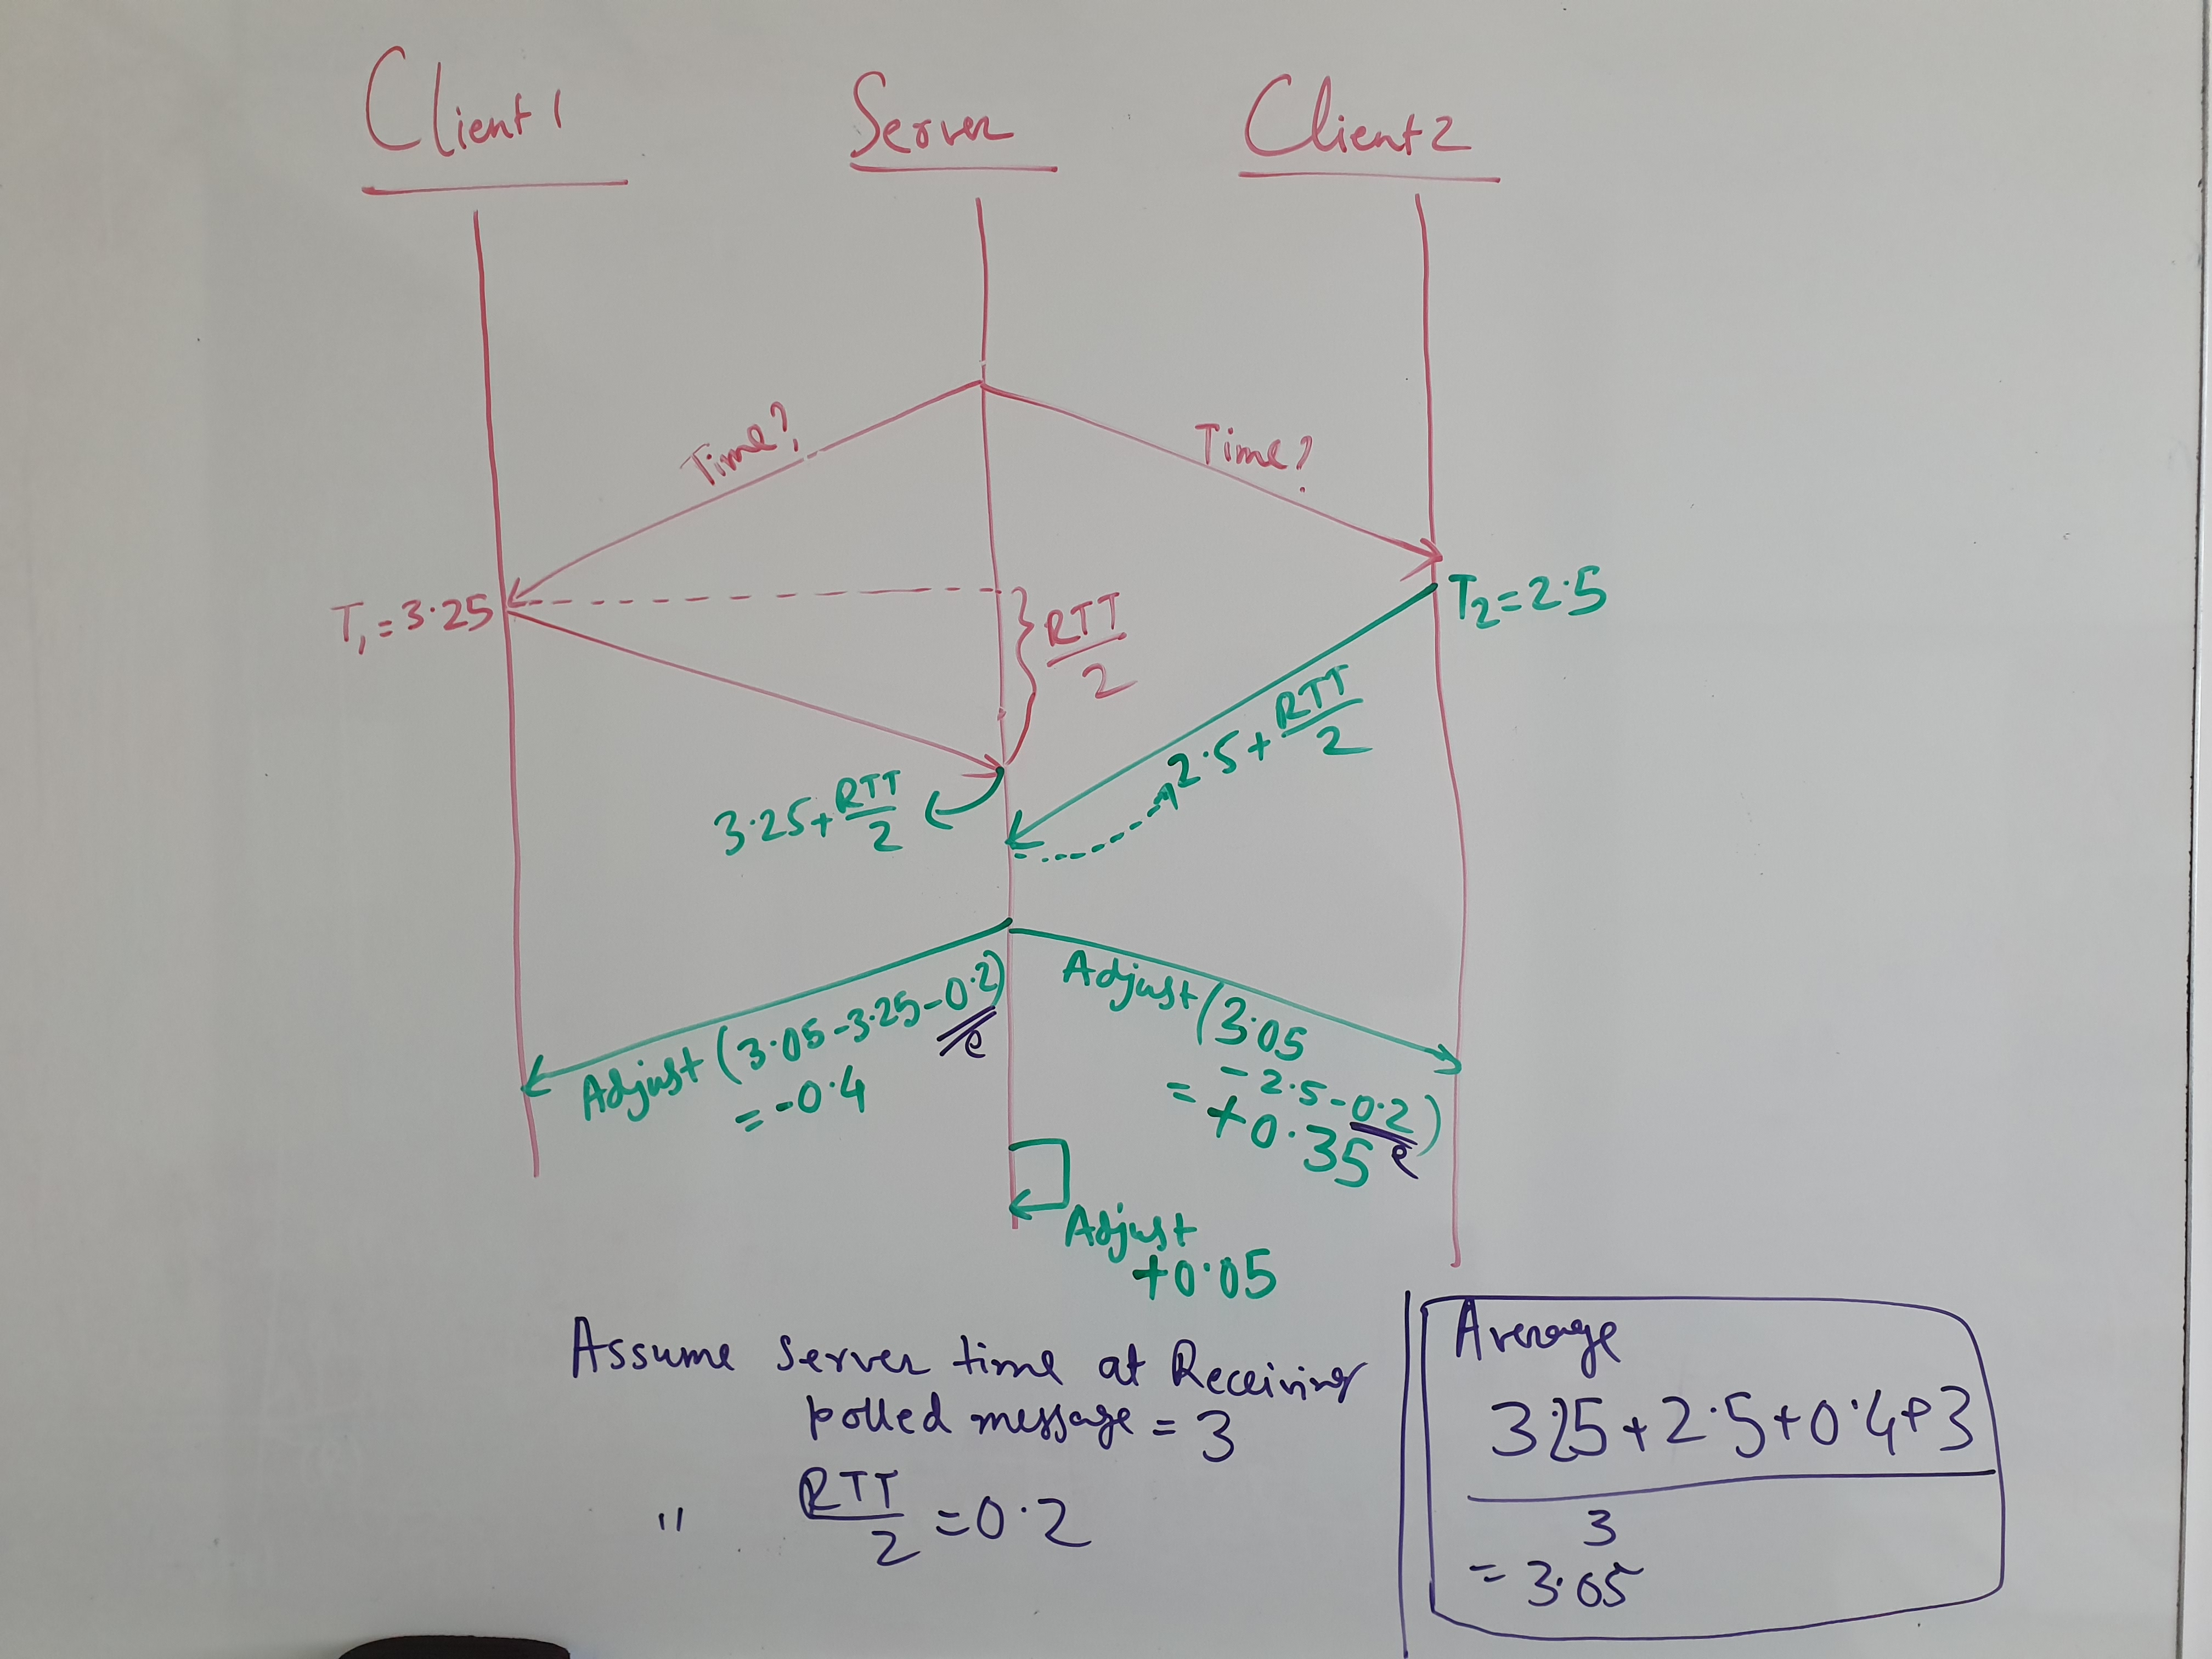 Client 1
Server
Client 2
Time?
Time?
T₁ = 3.25
RTT
2
T₂ = 2.5
2.5 + RTT
2
3.25 + RTT
2
Adjust (3.05 - 3.25 - 0.2)
e
= -0.4
Adjust (3.05
- 2.5 - 0.2)
e
= +0.35
Adjust
+0.05
Assume Server time at Receiving
polled message = 3
" RTT
2 = 0.2
Average
3.25 + 2.5 + 0.4 + 3
3
= 3.05